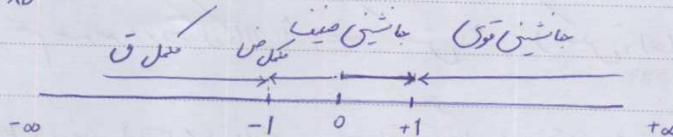 جانشینی قوی جانشینی ضعیف مکمل ض مکمل ق
-∞ -1 0 +1 +∞